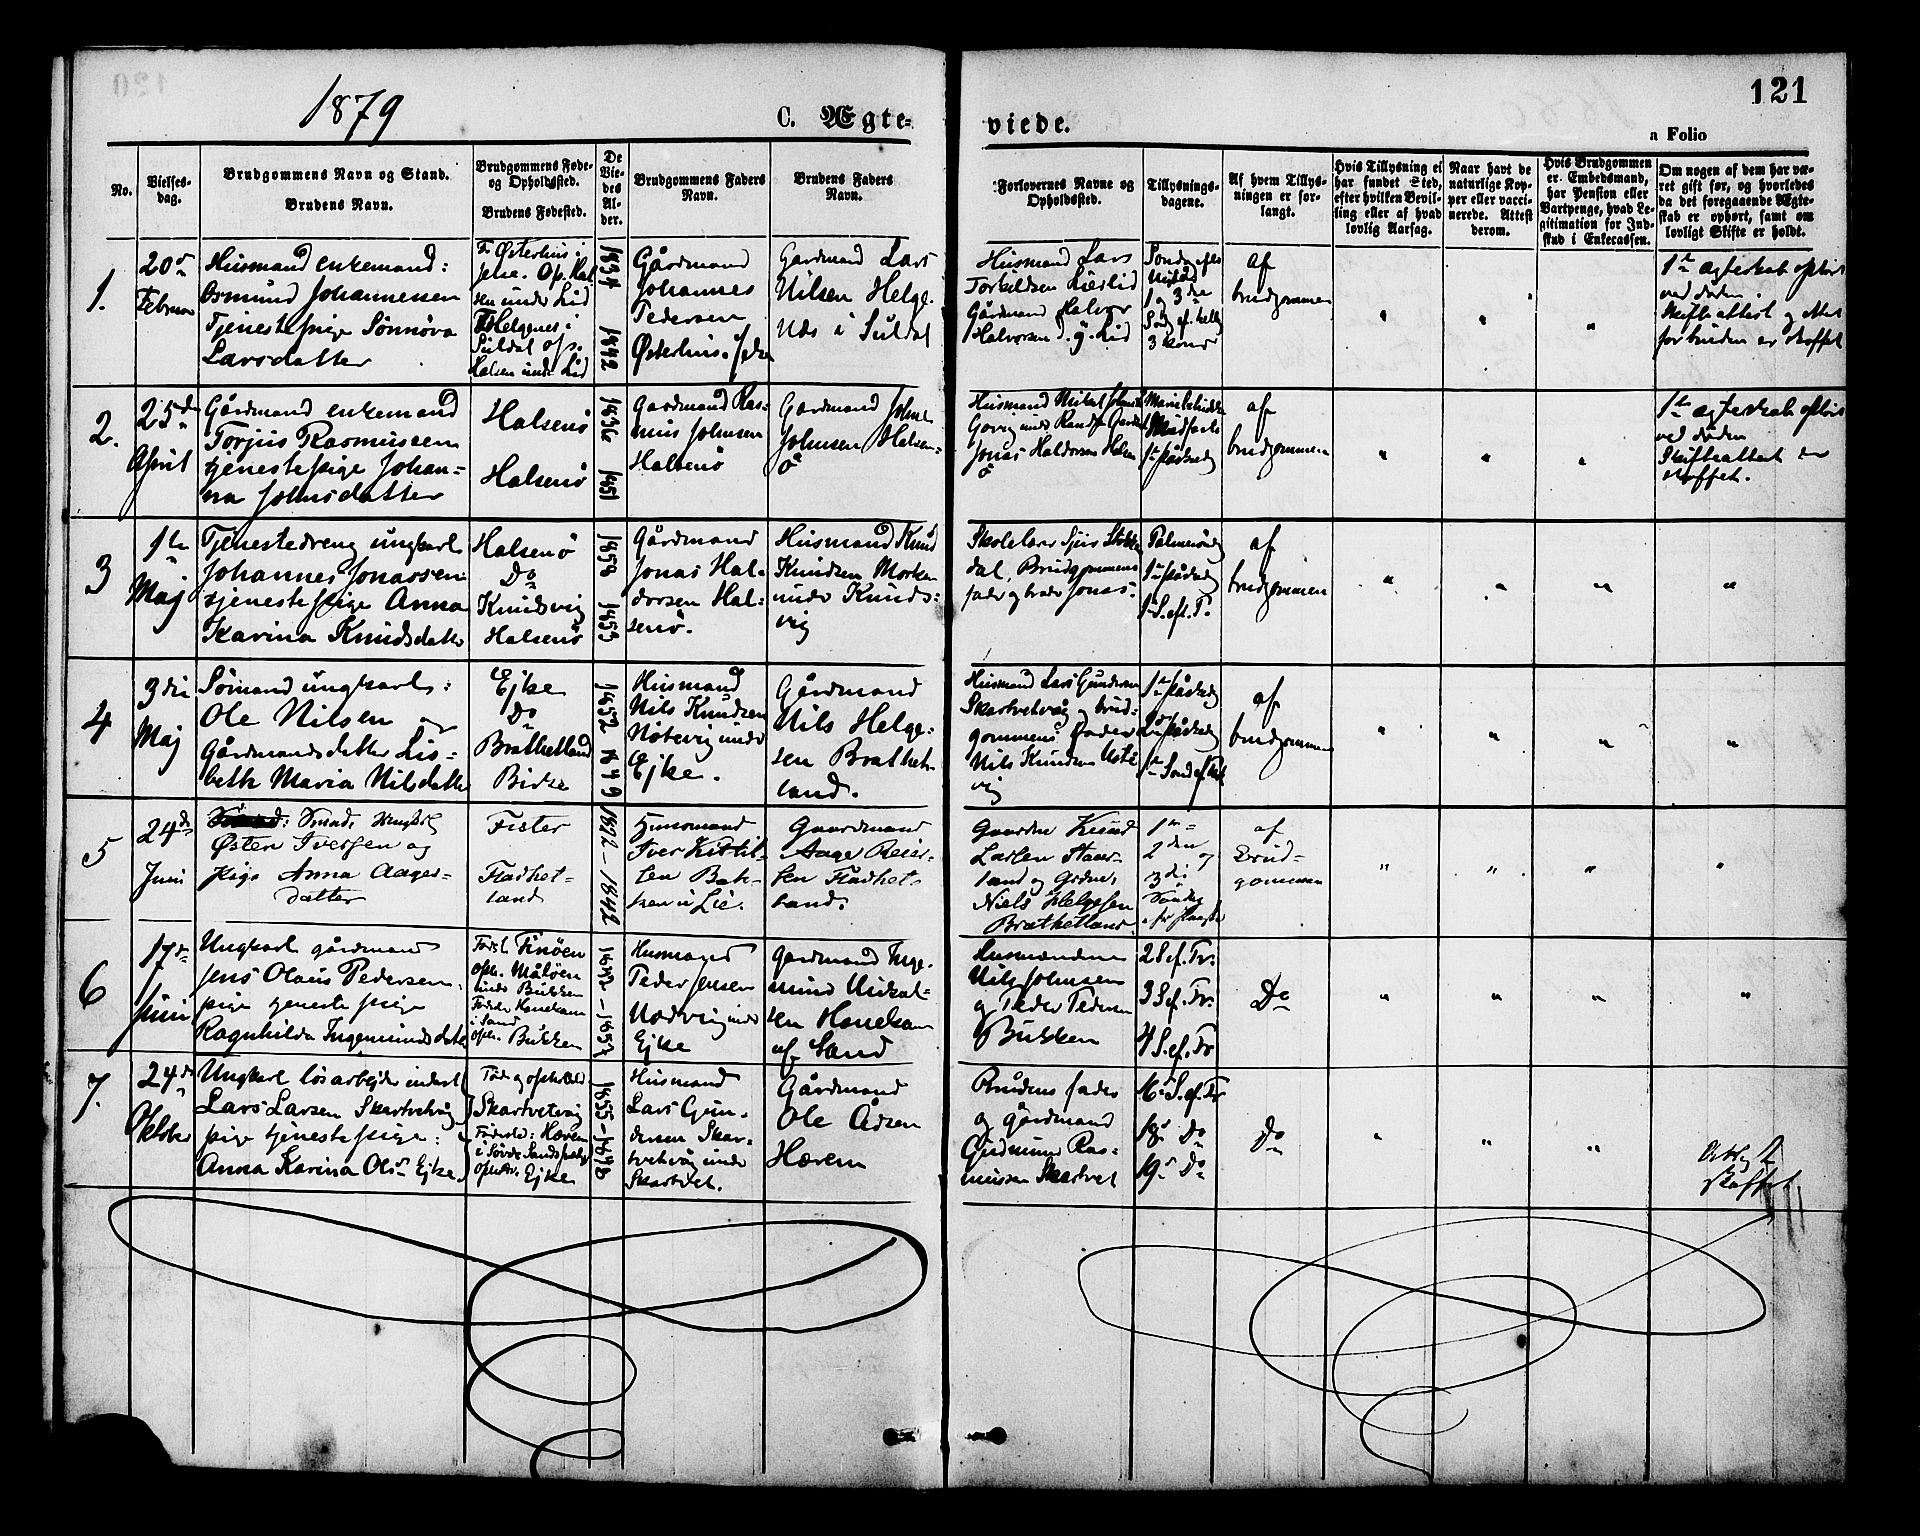 1879
C. Ægte-
viede.
121
a Folio
No.
Vielses-
dag.
Brudgommens Navn og Stand.
Brudens Navn.
Brudgommens Føde-
og Opholdssted.
Brudens Fødested.
De
Vie-
des
Al-
der.
Brudgommens Faders
Navn.
Brudens Faders
Navn.
Forlovernes Navne og
Opholdssted.
Tillysnings-
dagene.
Af hvem Tillys-
ningen er for-
langt.
Hvis Tillysning ei
har fundet Sted,
efter hvilken Bevil-
ling eller af hvad
lovlig Aarsag.
Naar havt de
naturlige Kop-
per eller vacci-
nerede. Attest
derom.
Hvis Brudgommen
er Embedsmand,
har Pension eller
Vartpenge, hvad Le-
gitimation for Ind-
skud i Enkecassen.
Om nogen af dem har væ-
ret gift før, og hvorledes
da det foregaaende Ægte-
skab er ophørt, samt om
lovligt Skifte er holdt.
1.
20
Februar
Husmand enkemand:
Osmund Johannessen
Tjenestepige Sønnøva
Larsdatter
F. Østerhus i
Jelse. Op. Hal
sen under Lid
F. Helgenes i
Suldal op.
Halsen under Lid
1834
1842
Gårdmand
Johannes
Pedersen
Østerhus. Jelse
Gardmand Lars
Nilsen Helge-
næs i Suldal
Husmand Lars
Torkeldsen Lid
Gårdmand Halvor
Halvorsen d. y. Lid
1 og 3die
af
brudgommen
1te ægteskab opløst
ved døden.
Skifteattest og attest
for bruden er skaffet
2.
25de
April
Gårdmand enkemand
Torjus Rasmussen
tjenestepige Johan-
na Johnsdatter
Halsenø
Halsenø
1836
1851
Gardmand Ras-
mus Johnsen
Halsenø
Gardmand John
Johnsen Halsen-
ø
Husmand Mikal
Jonas Haldorsen Halsen
ø
Marie
Midfaste
1te Påskedag
af
brudgommen
1te ægteskab opløst
ved døden
Skifteattest er
skaffet.
3
1te
Maj
Tjenestedreng ungkarl
Johannes Jonassen
tjenestepige Anna
Karina Knudsdatter
Halsenø
Do
Knudsvig
Halsenø
1858
1853
Gårdmand
Jonas Hal-
dorsen Hal-
senø.
Husmand Knud
Knudsen Morken
under Knuds-
vig
Skolelærer Sjur Stokke
dal, Brudgommens
fader Jonas.
Palmesøndag
1te Påskedag
1te S. eft. P.
af
brudgommen
4
3die
Maj
Sømand ungkarl:
Ole Nilsen og
Gårdmandsdatter Lis-
beth Maria Nilsdatter
Ejke
Do
Brathetland
Birke
1852
1849
Husmand
Nils Knudsen
Notevig under
Ejke.
Gårdmand
Nils Helge-
sen Brathet-
land.
Husmand Lars Gundersen
Skartvetvåg og brud-
gommens Fader
Nils Knudsen Note
vig
1te Påskedag
2den Påskedag
1te Sønd. ef. Påsk
af
brudgommen
5
24de
Juni
Østen Iversen og
Pige Anna Aager-
datter
Fister
Fladhet-
land
1822 - 1842
Huusmand
Iver Kittil-
sen Bak-
ken i Lie.
Gaardmand
Aage Reier-
sen Fladhet-
land.
Gaardm Knud
Larsen Staur-
land og Grdm.
Niels Helgesen
Brathetland.
1ste
2den og
3di
af
Brud-
gommen
6
17de
Juni
Ungkarl gårdmand
Jens Olaus Pedersen
pige tjenestepige
Ragnhilda Ingemundsdatter
Fødst. Finøen
oph. Måløen
under Bukken
Fødste Honekam
i Sand
oph. Bukken
1852 - 1857
Husmand
Peder Jensen
Nodvig under
Ejke
Gardmand Inge-
mund Mikal-
sen Honekam
af Sand
Husmændene
Nils Johnsen
og Peder Pedersen
Bukken
2 S. ef. Tr.
3 S. ef. Tr.
4 S. ef. Tr
Do
7.
24de
Oktober
Ungkarl løsarbejder inderst
Lars Larsen Skartvetvåg
pige tjenestepige:
Anna Karina Olsdr Ejke
Føde og opholdssted
Skartvetvig
Fødested: Hærem
i Søvde Sands præstg
opholdst. Ejke
1855 - 1848
Husmand
Lars Gun-
dersen Skar-
tvetvåg under
Skartvet.
Gårdmand
Ole Ådsen
Hærem
Brudens fader
og gårdmand
Gudmund Ras-
mussen Skartvet
16 S. ef. Tr
18 Do
19 Do
Do
Attest
skaffet